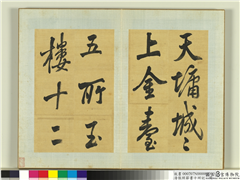 天墉城〻
上金臺
五所玉
樓十二